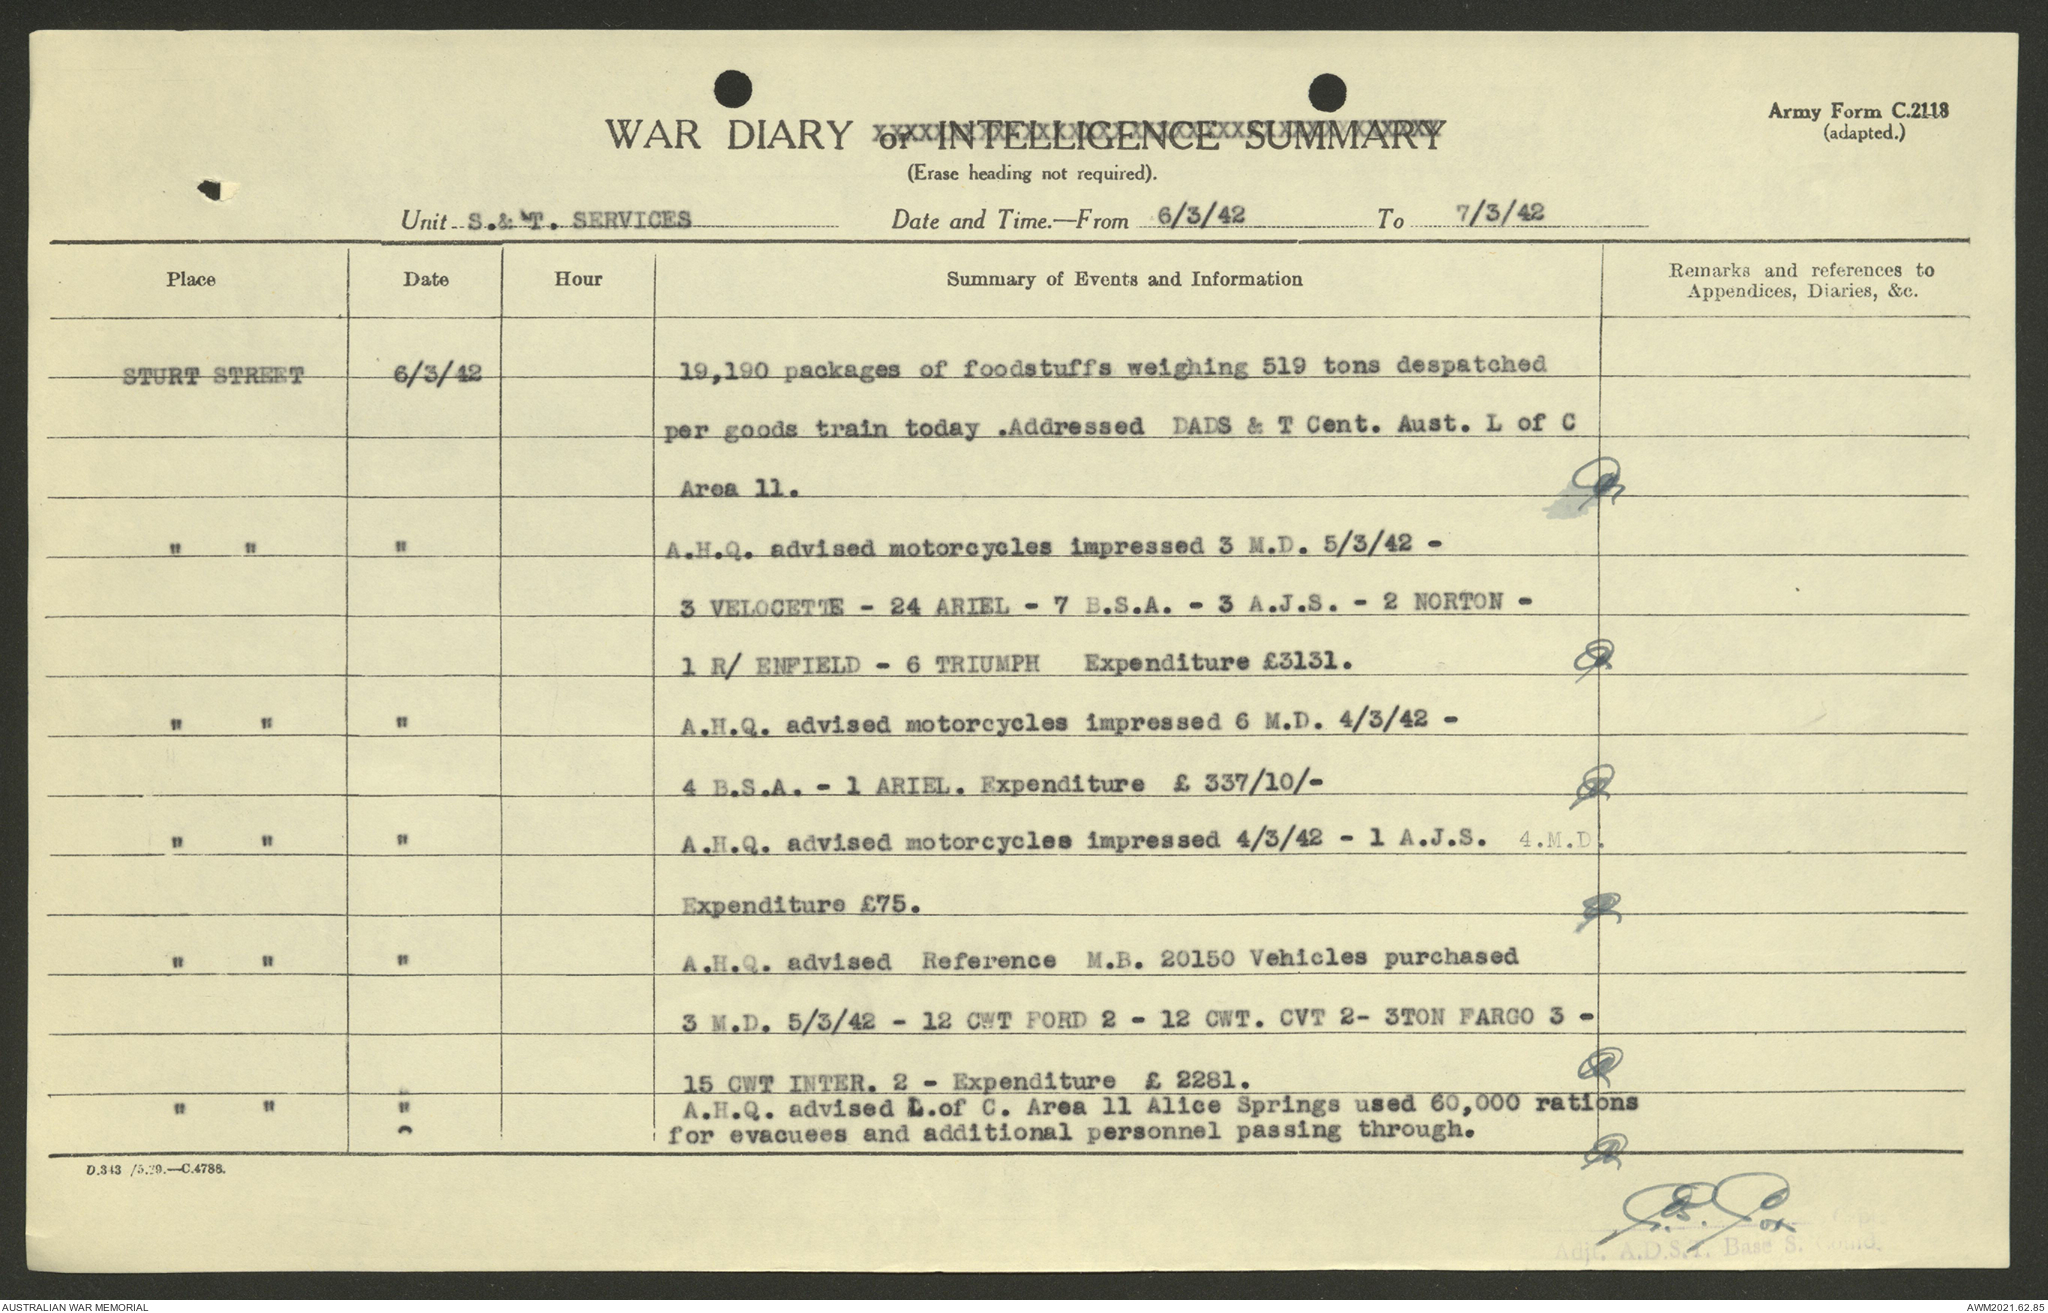 Army Form C.2118
(adapted.)
WAR DIARY or INTELLIGENCE SUMMARY
(Erase heading not required).
Unit S.& T. SERVICES Date and Time.—From 6/3/42 To 7/3/42
Place Date Hour Summary of Events and Information Remarks and references to
Appendices, Diaries, &c.
STURT STREET 6/3/42 19,190 packages of foodstuffs weighing 519 tons despatched
per goods train today .Addressed DADS & T Cent. Aust. L of C
Area 11.
" " " A.H.Q. advised motorcycles impressed 3 M.D. 5/3/42 -
3 VELOCETTE - 24 ARIEL - 7 B.S.A. - 3 A.J.S. - 2 NORTON -
1 R/ ENFIELD - 6 TRIUMPH Expenditure £3131.
" " " A.H.Q. advised motorcycles impressed 6 M.D. 4/3/42 -
4 B.S.A. - 1 ARIEL. Expenditure £ 337/10/-
" " " A.H.Q. advised motorcycles impressed 4/3/42 - 1 A.J.S. 4.M.D.
Expenditure £75.
" " " A.H.Q. advised Reference M.B. 20150 Vehicles purchased
3 M.D. 5/3/42 - 12 CWT FORD 2 - 12 CWT. CVT 2- 3TON FARGO 3 -
15 CWT INTER. 2 - Expenditure £ 2281.
" " " A.H.Q. advised L.of C. Area 11 Alice Springs used 60,000 rations
for evacuees and additional personnel passing through.
D.343 /5.39.—C.4788.
Adjt. A.D.S.T. Base S.
AUSTRALIAN WAR MEMORIAL AWM2021.62.85